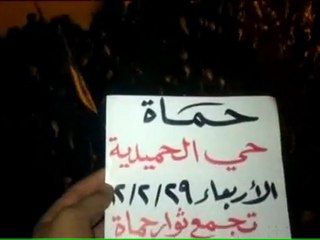 حماة
حي الحميدية
الأربعاء ٢/٢/٢٩
تجمع ثوار حماة